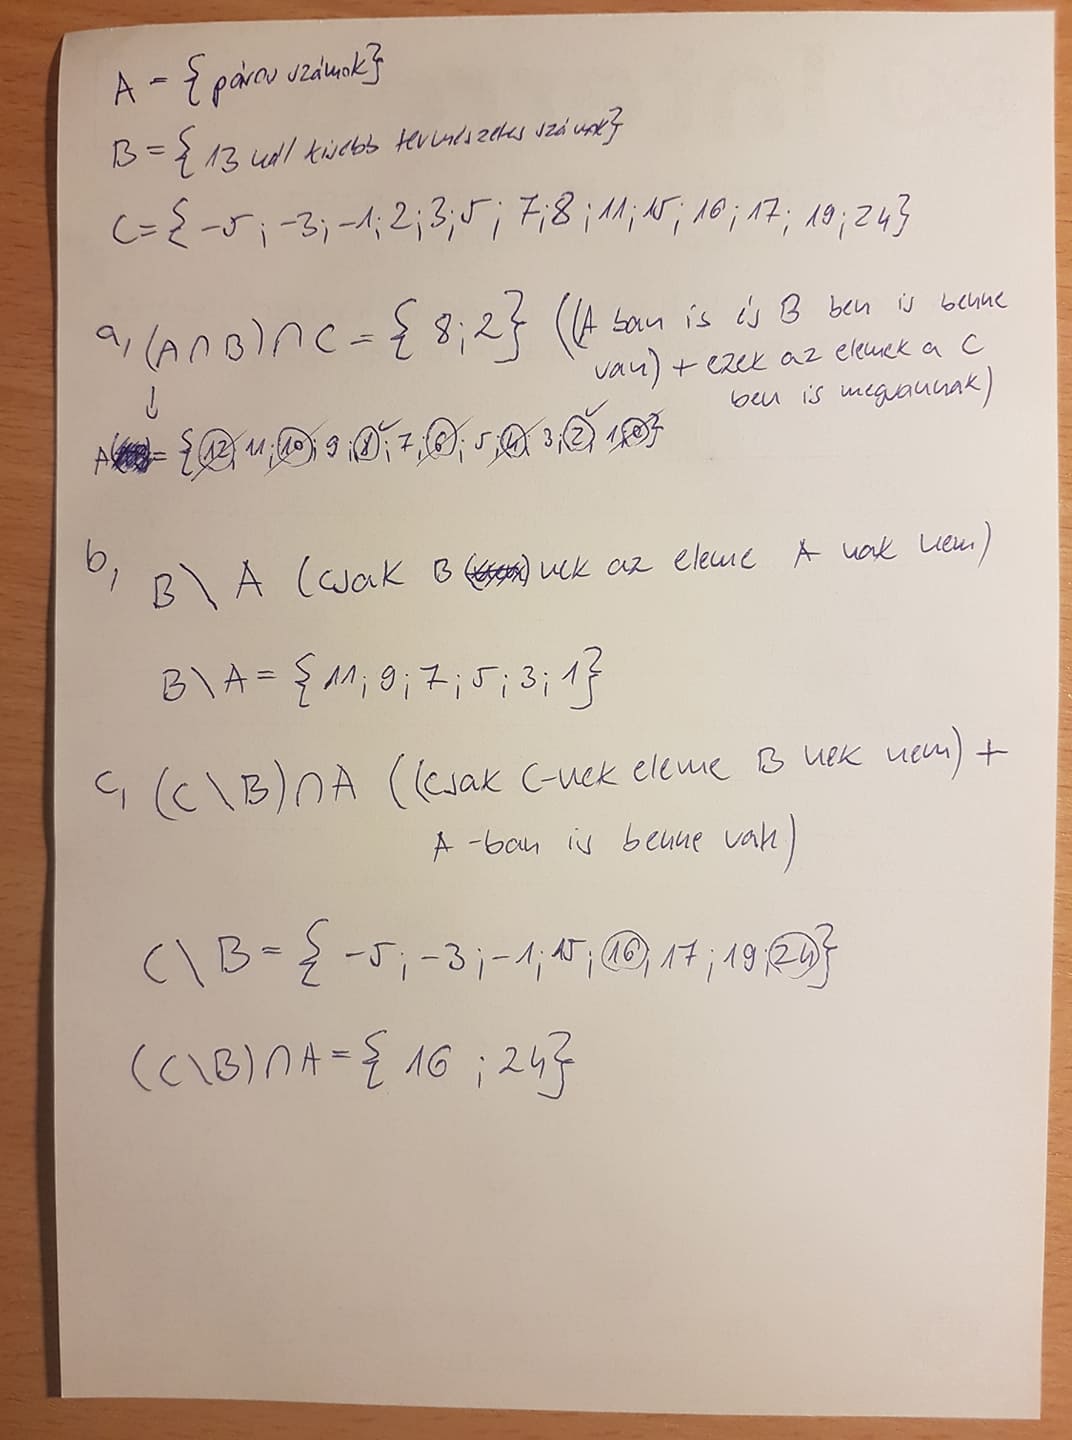 A = {páros számok}
B = {13 nál kisebb természetes számok}
C = {-5; -3; -1; 2; 3; 5; 7; 8; 11; 15; 16; 17; 19; 24}
a, (A∩B)∩C = {8; 2} ((A ban is és B ben is benne
van) + ezek az elemek a C
ben is megvannak)
↓
A = {12; 11; 10; 9; 8; 7; 6; 5; 4; 3; 2; 1; 0}
b, B \ A (csak B nek az eleme A nak nem)
B \ A = {11; 9; 7; 5; 3; 1}
c, (C \ B)∩A ((csak C-nek eleme B nek nem) +
A-ban is benne van)
C \ B = {-5; -3; -1; 15; 16; 17; 19; 24}
(C \ B)∩A = {16; 24}